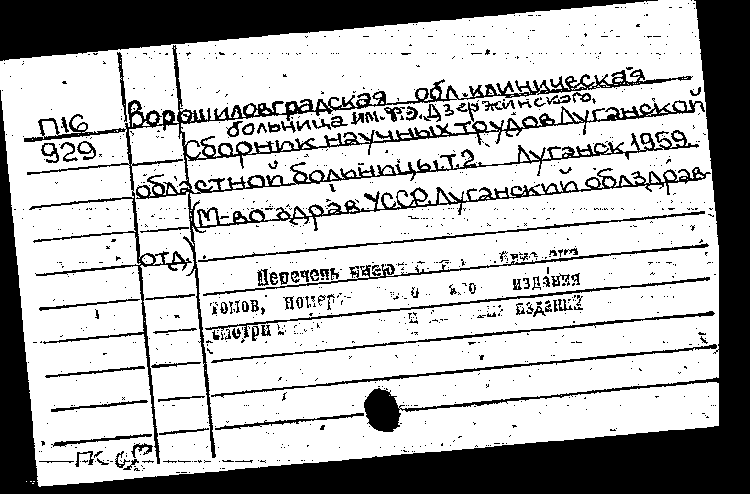 Ворошиловградская обл. клиническая
П16 больница им. Ф.Э. Дзержинского.
929. Сборник научных трудов Луганской
областной больницы. Т.2. Луганск, 1959.
(М-во здрав. УССР. Луганский облздрав-
отд.)
Перечень имею
томов, номер издания
смотри изданий
ГК